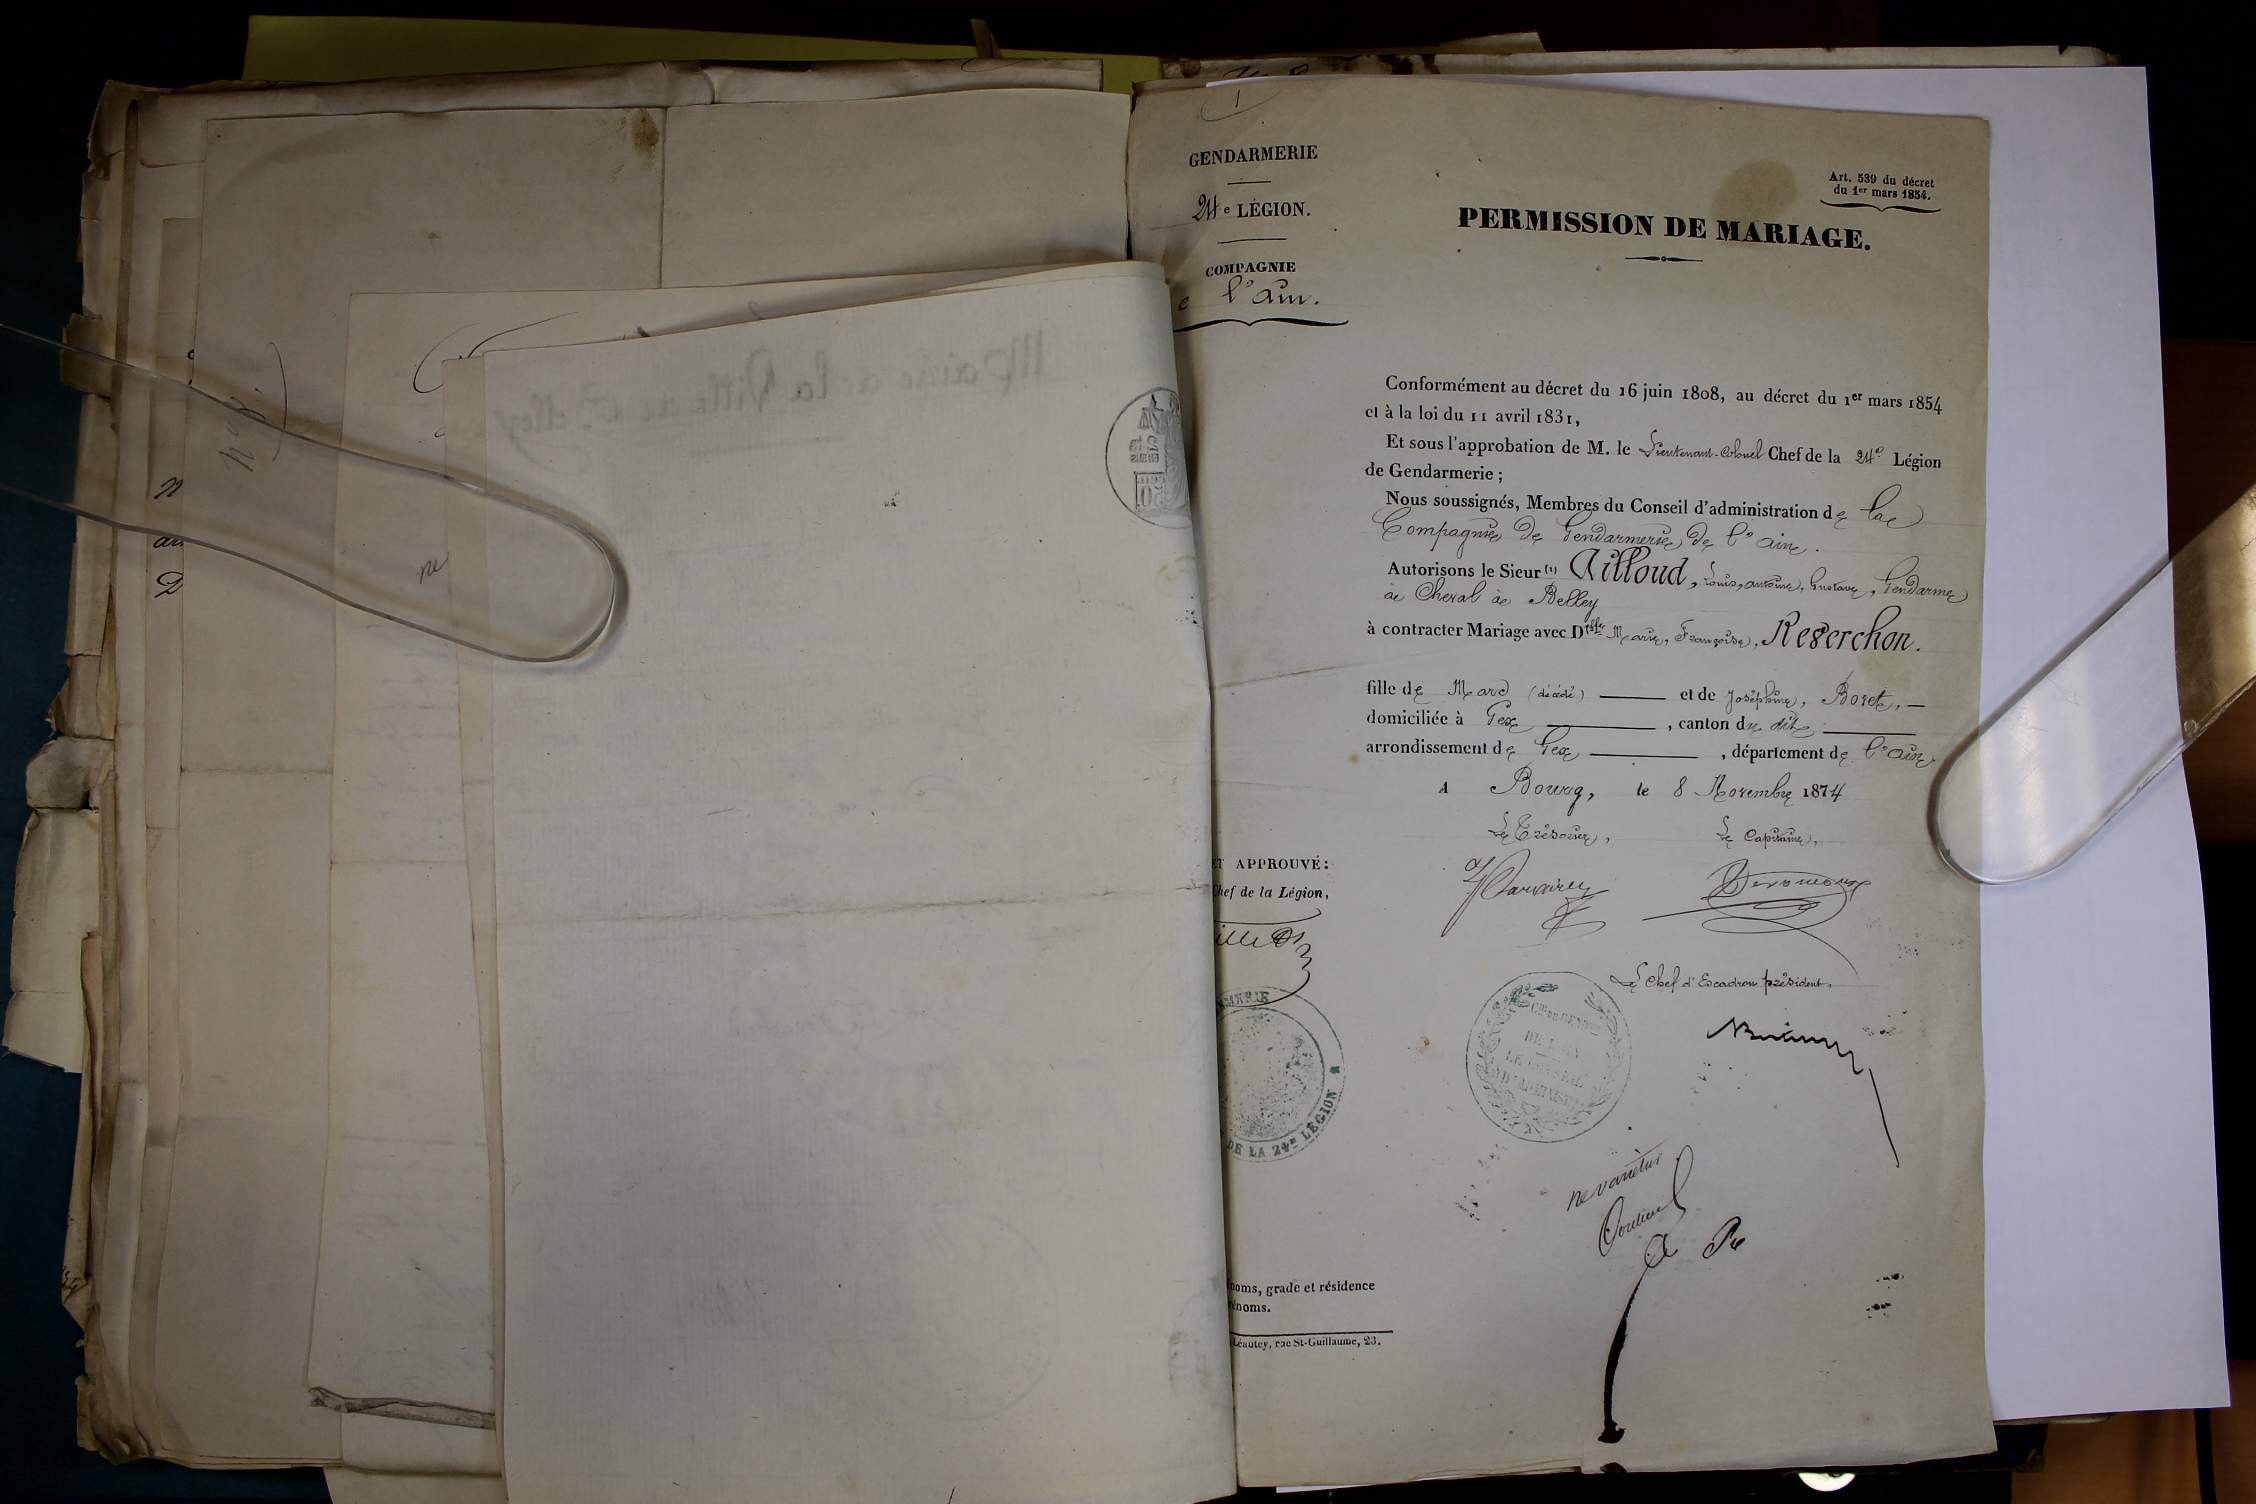 1
GENDARMERIE
24e LÉGION.
COMPAGNIE
e l'ain.
Art. 539 du décret
du 1er mars 1854.
PERMISSION DE MARIAGE.
Conformément au décret du 16 juin 1808, au décret du 1er mars 1854
et à la loi du 11 avril 1831,
Et sous l'approbation de M. le Lieutenant-Colonel Chef de la 24e Légion
de Gendarmerie ;
Nous soussignés, Membres du Conseil d'administration de la
Compagnie de Gendarmerie de l'ain.
Autorisons le Sieur (1) Ailloud, Louis, antoine, Gustave, Gendarme
à Cheval à Belley
à contracter Mariage avec Dlle Marie, Françoise, Reverchon.
fille de Marc (décédé) et de Joséphine, Boret,
domiciliée à Gex, canton du dit
arrondissement de Gex, département de l'ain
A Bourg, le 8 Novembre 1874
Le Trésorier, Le Capitaine,
ET APPROUVÉ :
Chef de la Légion,
Le Chef d'Escadron président,
DE LA 24e LÉGION
ne varietur
noms, grade et résidence
énoms.
Léautey, rue St-Guillaume, 23.
Mairie de la Ville de Belley
ne